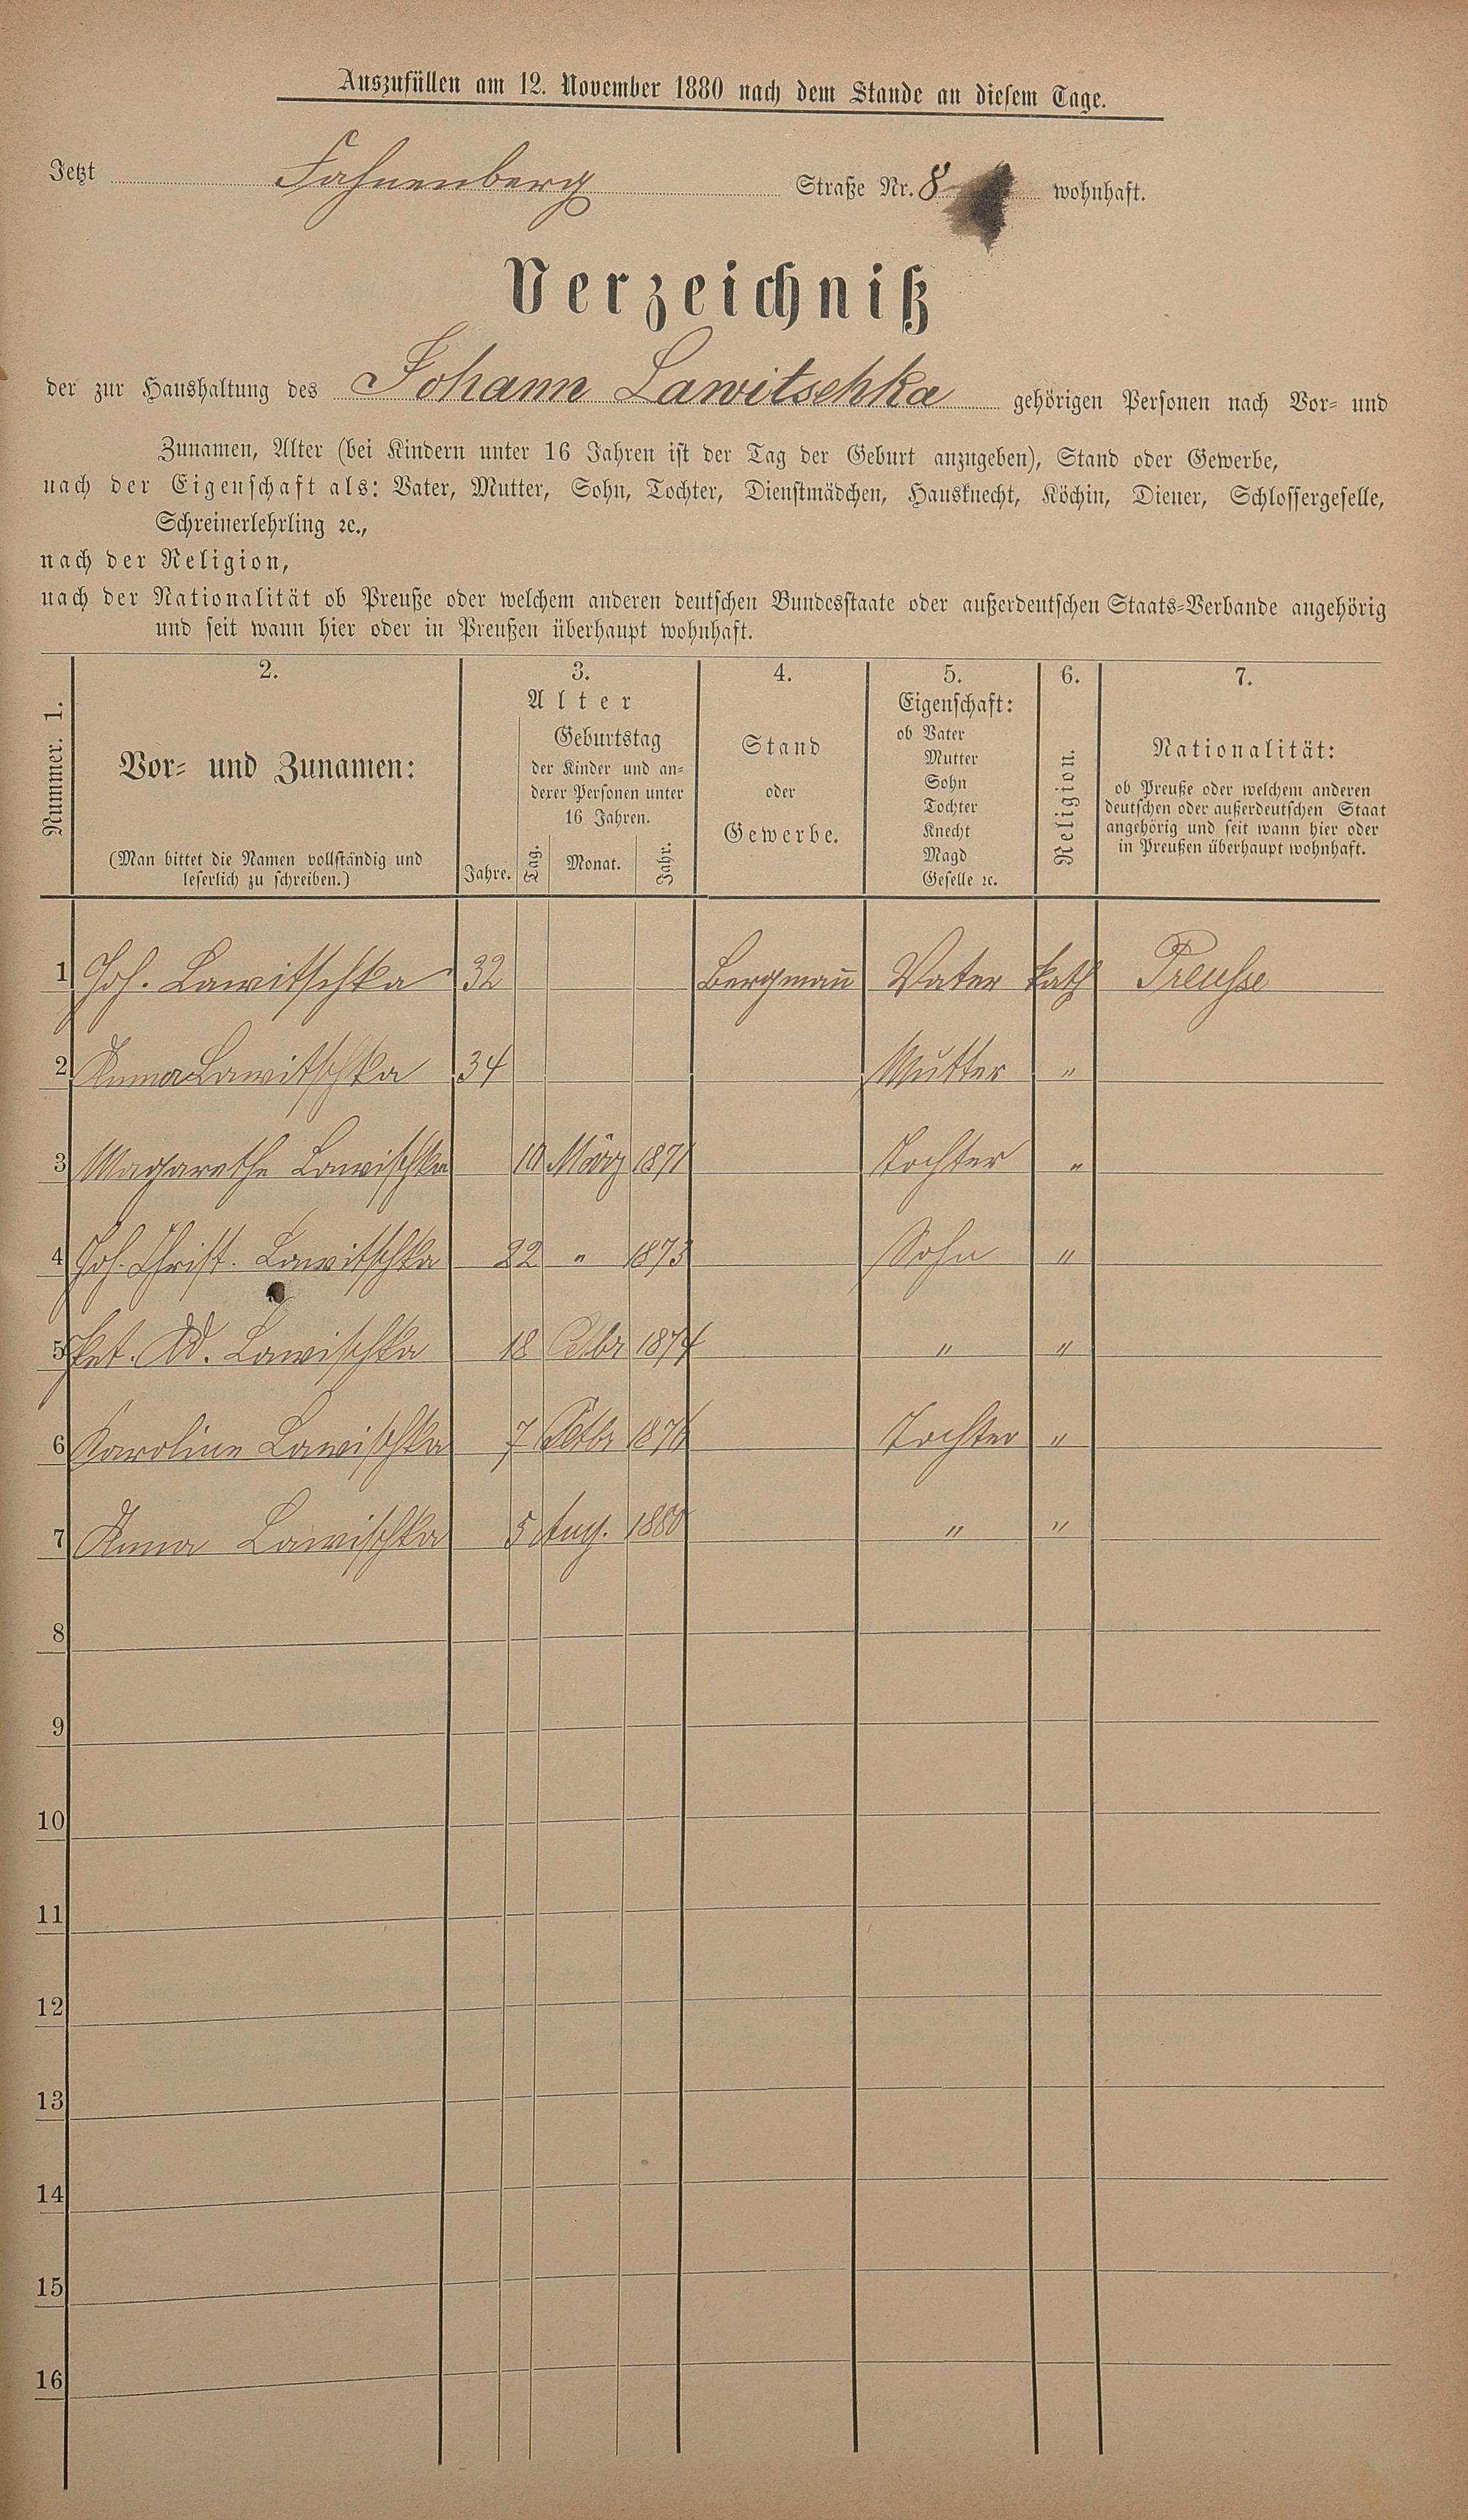 Auszufüllen am 12. November 1880 nach dem Stande an diesem Tage.
Jetzt Fahnenberg Straße Nr. 8 wohnhaft.
Verzeichniß
der zur Haushaltung des Johann Lawitschka gehörigen Personen nach Vor- und
Zunamen, Alter (bei Kindern unter 16 Jahren ist der Tag der Geburt anzugeben), Stand oder Gewerbe,
nach der Eigenschaft als: Vater, Mutter, Sohn, Tochter, Dienstmädchen, Hausknecht, Köchin, Diener, Schlossergeselle,
Schreinerlehrling ꝛc.,
nach der Religion,
nach der Nationalität ob Preuße oder welchem anderen deutschen Bundesstaate oder außerdeutschen Staats-Verbande angehörig
und seit wann hier oder in Preußen überhaupt wohnhaft.
Nummer. 1.
2.
Vor- und Zunamen:
(Man bittet die Namen vollständig und
leserlich zu schreiben.)
3.
Alter
Geburtstag
der Kinder und an-
derer Personen unter
16 Jahren.
Jahre. Tag. Monat. Jahr.
4.
Stand
oder
Gewerbe.
5.
Eigenschaft:
ob Vater
Mutter
Sohn
Tochter
Knecht
Magd
Geselle ꝛc.
6.
Religion.
7.
Nationalität:
ob Preuße oder welchem anderen
deutschen oder außerdeutschen Staat
angehörig und seit wann hier oder
in Preußen überhaupt wohnhaft.
1 Joh. Lawitschka 32 Bergmañ Vater kath Preusse
2 Anna Lawitschka 34 Mutter "
3 Margarethe Lawischka 10 März 1871 Tochter "
4 Joh. Christ. Lawitschka 22 " 1873 Sohn "
5 Pet. Ad. Lawischka 18 1874 " "
6 Karoline Lawischka 7 1876 Tochter "
7 Anna Lawischka 5 Aug. 1880 " "
8
9
10
11
12
13
14
15
16